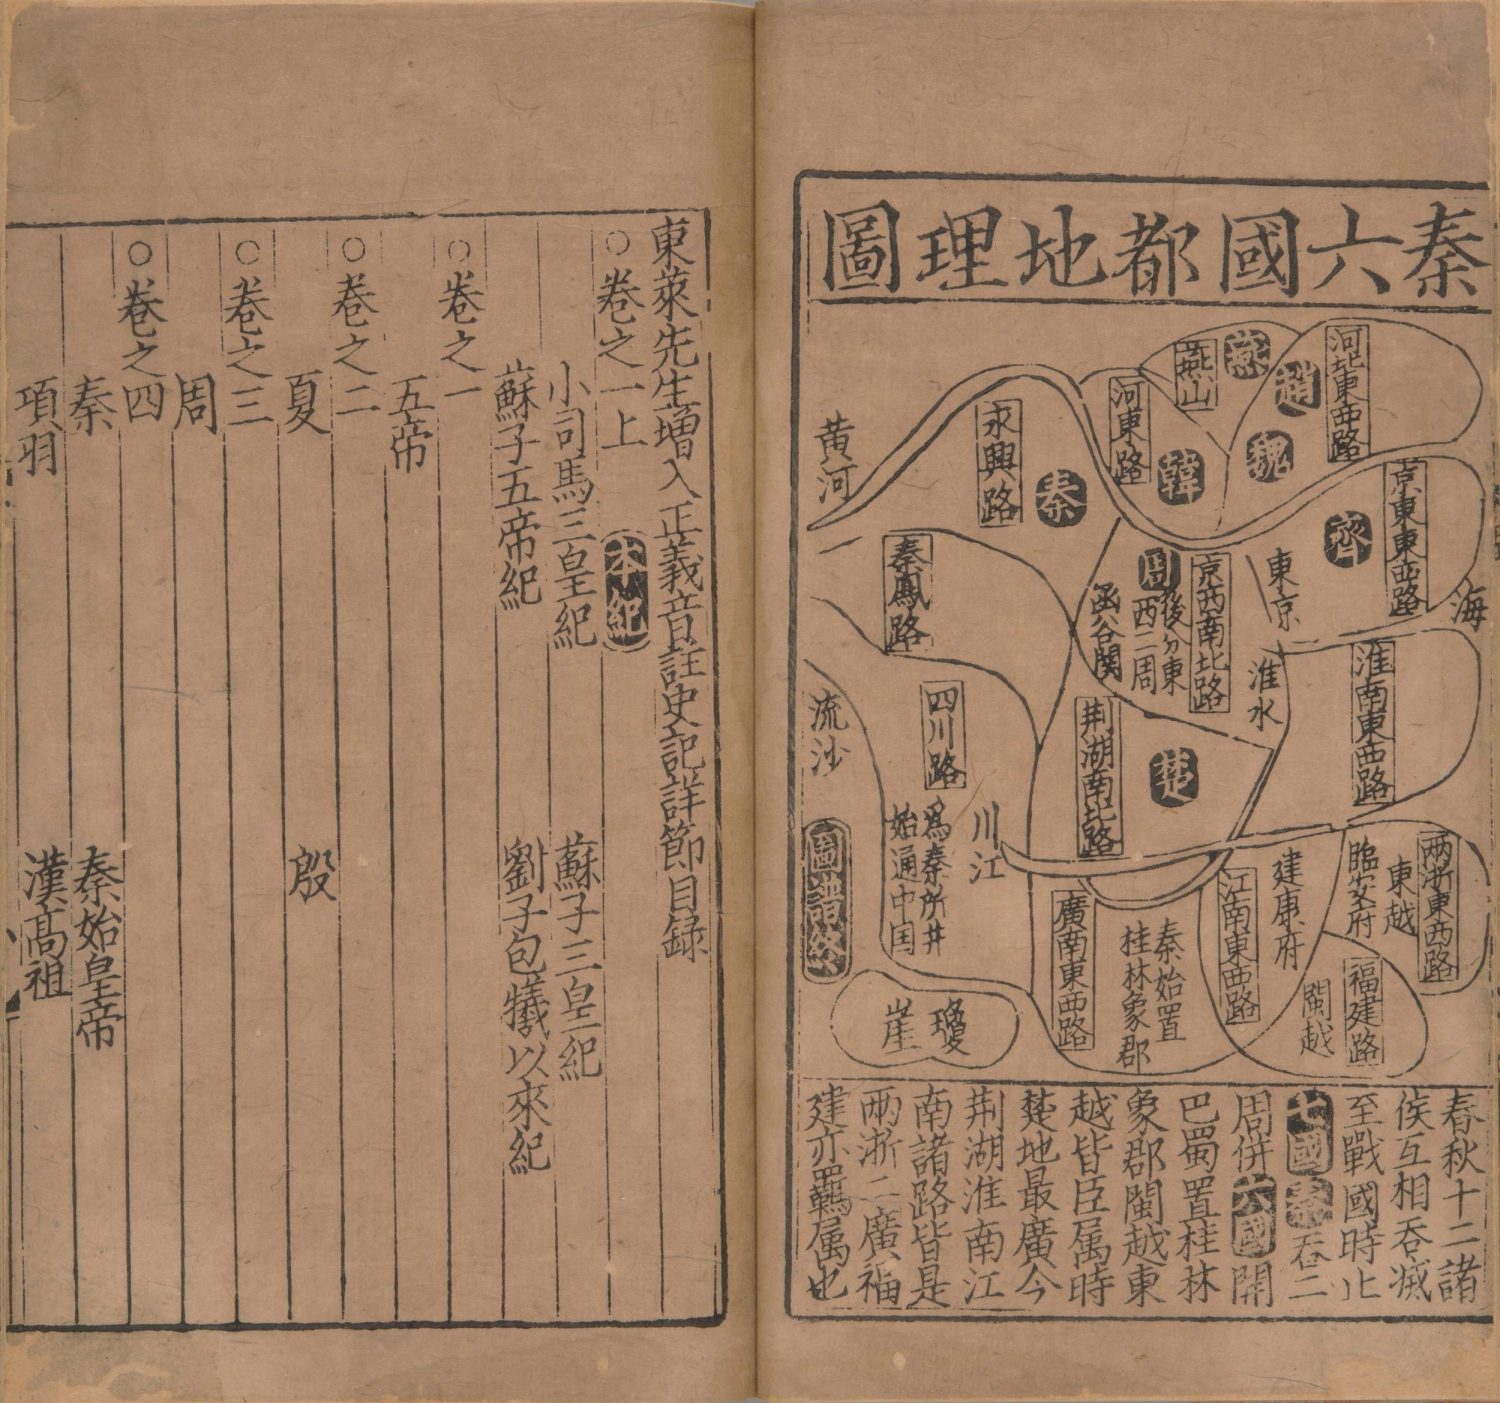 秦六國都地理圖
河北東西路
趙
燕
燕山
魏
河東路
韓
永興路
秦
黃河
京東東西路
齊
海
東京
京西南北路
周
後分東
西二周
函谷関
秦鳳路
淮南東西路
淮水
荆湖南北路
楚
四川路
流沙
川江
為秦所并
始通中国
两浙東西路
東越
臨安府
建康府
江南東西路
福建路
閩越
秦始置
桂林象郡
廣南東西路
瓊
崖
圖譜終
春秋十二諸
侯互相吞㓕
至戰國時止
七國秦吞二
周併六國開
巴蜀置桂林
象郡閩越東
越皆臣属時
楚地最廣今
荆湖淮南江
南諸路皆是
两浙二廣福
建亦羈属也
東萊先生增入正義音註史記詳節目録
○卷之一上 本紀
小司馬三皇紀 蘇子三皇紀
蘇子五帝紀 劉子包犧以來紀
○卷之一
五帝
○卷之二
夏 殷
○卷之三
周
○卷之四
秦 秦始皇帝
項羽 漢高祖